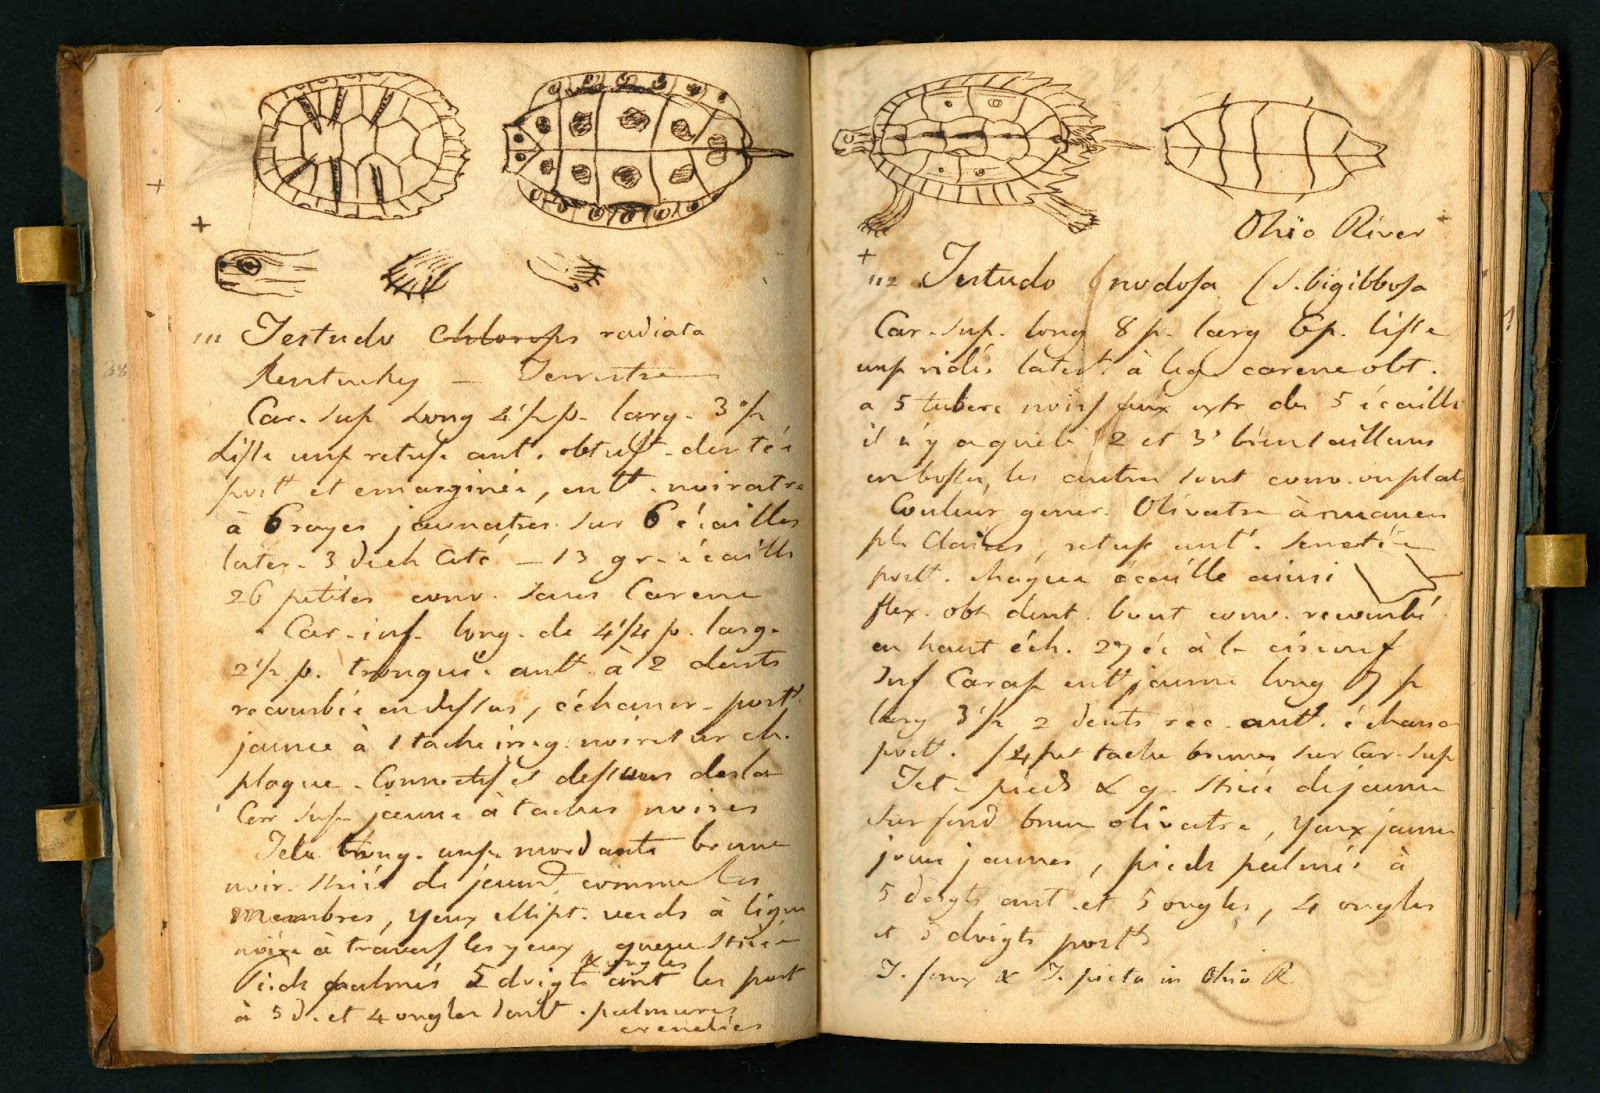 111 Testudo Chlorops radiata
Kentucky — Terrestre
Car. sup Long 4½ p. larg. 3½ p
Lisse unp retuse ant. obtusᵗ dentée
postᵗ et emarginée, entᵗ. noiratre
à 6 rayes jaunatres sur 6 écailles
later. 3 de ch coté — 13 gr. écaills
26 petites conv. sans Carene
Car. inf. long. de 4¼ p. larg.
2½ p. tronquée antᵗ à 2 dents
recourbée en dessus, échancr. postᵗ
jaune à 1 tache irreg. noire sur ch.
plaque. Connectif et dessous de la
Car sup jaune à taches noires
Tete long. mordante brune
noir. striée de jaune comme les
membres, yeux ellipt. verds à ligne
noire à travers les yeux, queue striée
Pieds palmés 5 doigts & ongles ant les post
à 5 d. et 4 ongles dentᵗ. palmures
crenelées
Ohio River
112 Testudo nodosa (S. bigibbosa
Car. sup. long 8 p. larg 6 p. lisse
unp ridés laterᵗ à leg carene obt.
a 5 tuberc noirs aux extr des 5 écaills
il n'y a que le 2 et 3ᵉ bien saillans
en bosse, les autres sont conv. onplats
Couleur gener. Olivatre à nuances
pl. claires, retuse antᵗ.
postᵗ. chaque écaille ainsi
flex. obt dent. bout conv. recourbé
en haut éch. 27 éc à la circonf
Inf Carap entᵗ jaune long 7 p
larg 3½ p 2 dents rec. antᵗ. échancr
postᵗ. 14 pet tache brunes sur Car. sup
Tet. pieds & q. striée de jaune
sur fond brun olivatre, yeux jaune
joues jaunes, pieds palmés à
5 doigts ant. et 5 ongles, 4 ongles
et 5 doigts postᵗ
T. & T. picta in Ohio R